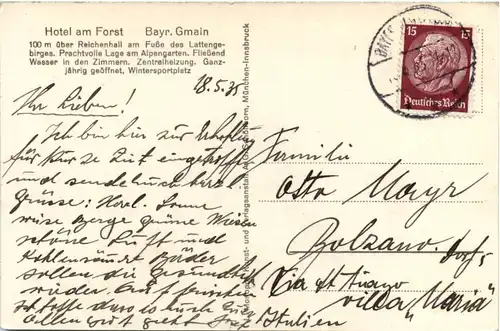 Hotel am Forst    Bayr. Gmain
100 m über Reichenhall am Fuße des Lattenge-
birges. Prachtvolle Lage am Alpengarten. Fließend
Wasser in den Zimmern. Zentralheizung. Ganz-
jährig geöffnet, Wintersportplatz
18.5.35
Ihr Lieben!
Ich bin hier zur Erholung
für kurze Zeit eingetroffen
und sende Euch herzl.
Grüsse: Herrl. Sonne
weise Berge grüne Wiesen
schöne Luft und
Kohlensäure Bäder
sollen die Gesundheit
wieder
Ich hoffe dass es Euch
Allen gut geht
München-Innsbruck
15 15
Deutsches Reich
Familie
Otto Mayr
Bolzano. Dorf
Via St
Villa „Maria"
Italien